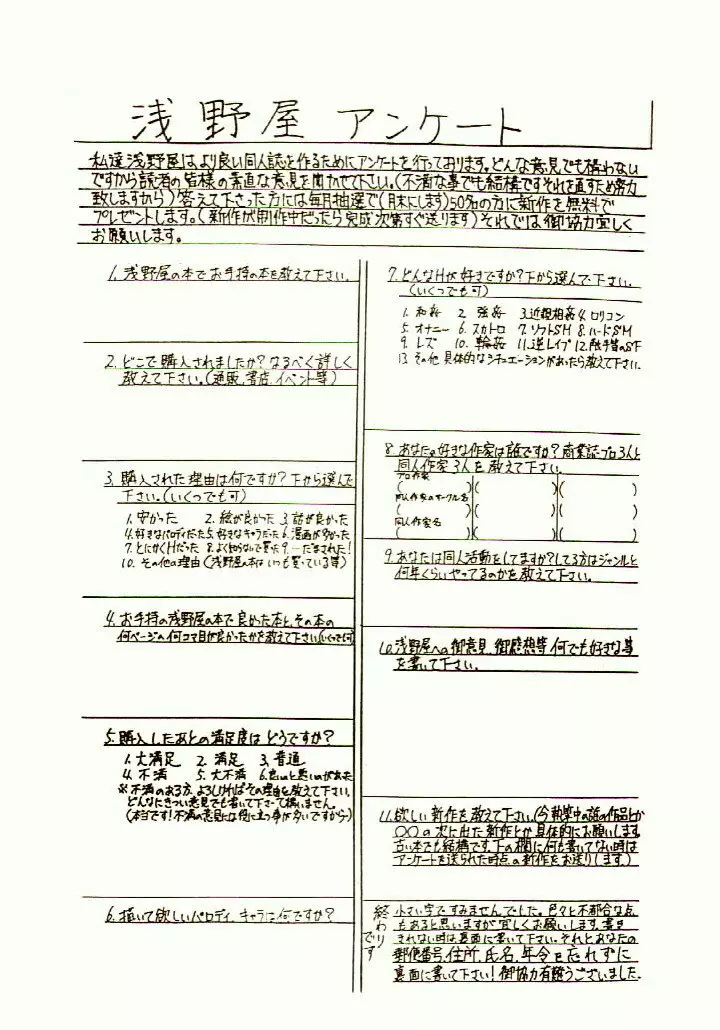 浅野屋 アンケート
私達浅野屋は、より良い同人誌を作るためにアンケートを行っております。どんな意見でも構わない
ですから読者の皆様の素直な意見を聞かせて下さい。(不満な事でも結構ですそれを直すため努力
致しますから)答えて下さった方には毎月抽選で(月末にします)50%の方に新作を無料で
プレゼントします。(新作が制作中だったら完成次第すぐ送ります)それでは御協力宜しく
お願いします。
1. 浅野屋の本でお手持の本を教えて下さい。
2. どこで購入されましたか?なるべく詳しく
教えて下さい。(通販、書店、イベント等)
3. 購入された理由は何ですか?下から選んで
下さい。(いくつでも可)
1. 安かった 2. 絵が良かった 3. 話が良かった
4. 好きなパロディだった 5. 好きなキャラだった 6. 漫画が多かった
7. とにかくHだった 8. よく知らないで買った 9. 一だまされた!
10. その他の理由(浅野屋の本はいつも買っている等)
4. お手持の浅野屋の本で良かった本と、その本の
何ページの何コマ目が良かったかを教えて下さい(いくつでも可)
5. 購入したあとの満足度はどうですか?
1. 大満足 2. 満足 3. 普通
4. 不満 5. 大不満 6. 良いのと悪いのがあった
※不満のある方、よろしければその理由を教えて下さい。
どんなにきつい意見でも書いて下さって構いません。
(本当です!不満の意見には役に立つ事が多いですから)
6. 描いて欲しいパロディ、キャラは何ですか?
7. どんなHが好きですか?下から選んで下さい。
(いくつでも可)
1. 和姦 2. 強姦 3. 近親相姦 4. ロリコン
5. オナニー 6. スカトロ 7. ソフトSM 8. ハードSM
9. レズ 10. 輪姦 11. 逆レイプ 12.
13. その他 具体的なシチュエーションがあったら教えて下さい。
8. あなたの好きな作家は誰ですか?商業誌・プロ3人と
同人作家3人を教えて下さい。
プロ作家
( )( )( )
同人作家のサークル名
( )( )( )
同人作家名
( )( )( )
9. あなたは同人活動をしてますか?してる方はジャンルと
何年くらいやってるのかを教えて下さい。
10. 浅野屋への御意見、御感想等何でも好きな事
を書いて下さい。
11. 欲しい新作を教えて下さい。(今執筆中の話の作品とか
〇〇の次に出た新作とか具体的にお願いします。
古い本でも結構です。下の欄に何も書いてない時は
アンケートを送られた時点の新作をお送りします。)
終わりです
小さい字ですみませんでした。色々と不都合な点
もあると思いますが宜しくお願いします。書き
きれない時は、裏面に書いて下さい。それとあなたの
郵便番号、住所、氏名、年令を忘れずに
裏面に書いて下さい!御協力有難うございました。